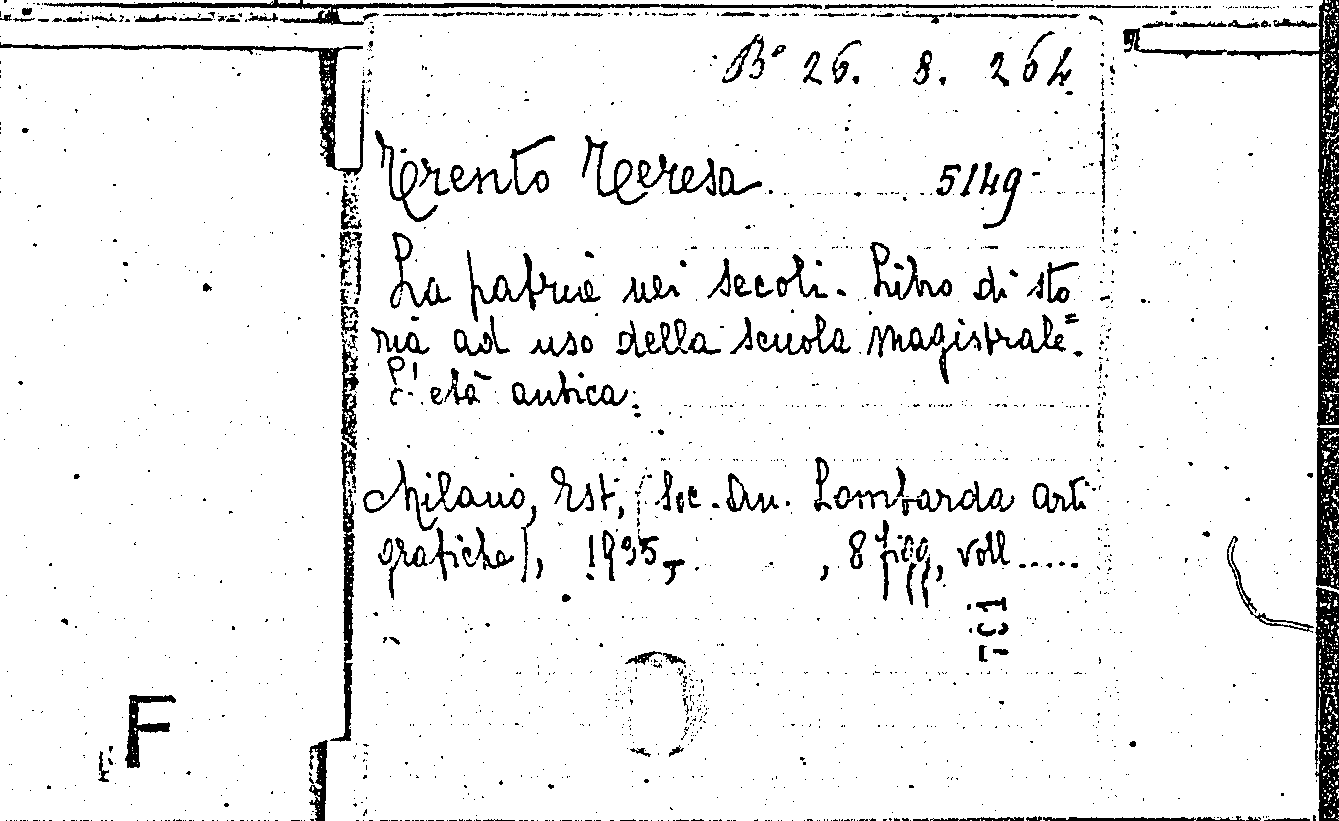 B° 26. 8. 264
Trento Teresa 5149
La patria nei secoli. Libro di sto=
ria ad uso della scuola magistrale.
L'età antica.
Milano, Est, (Soc. An. Lombarda arti
grafiche), 1935, , 8 figg, voll.....
TCI
F